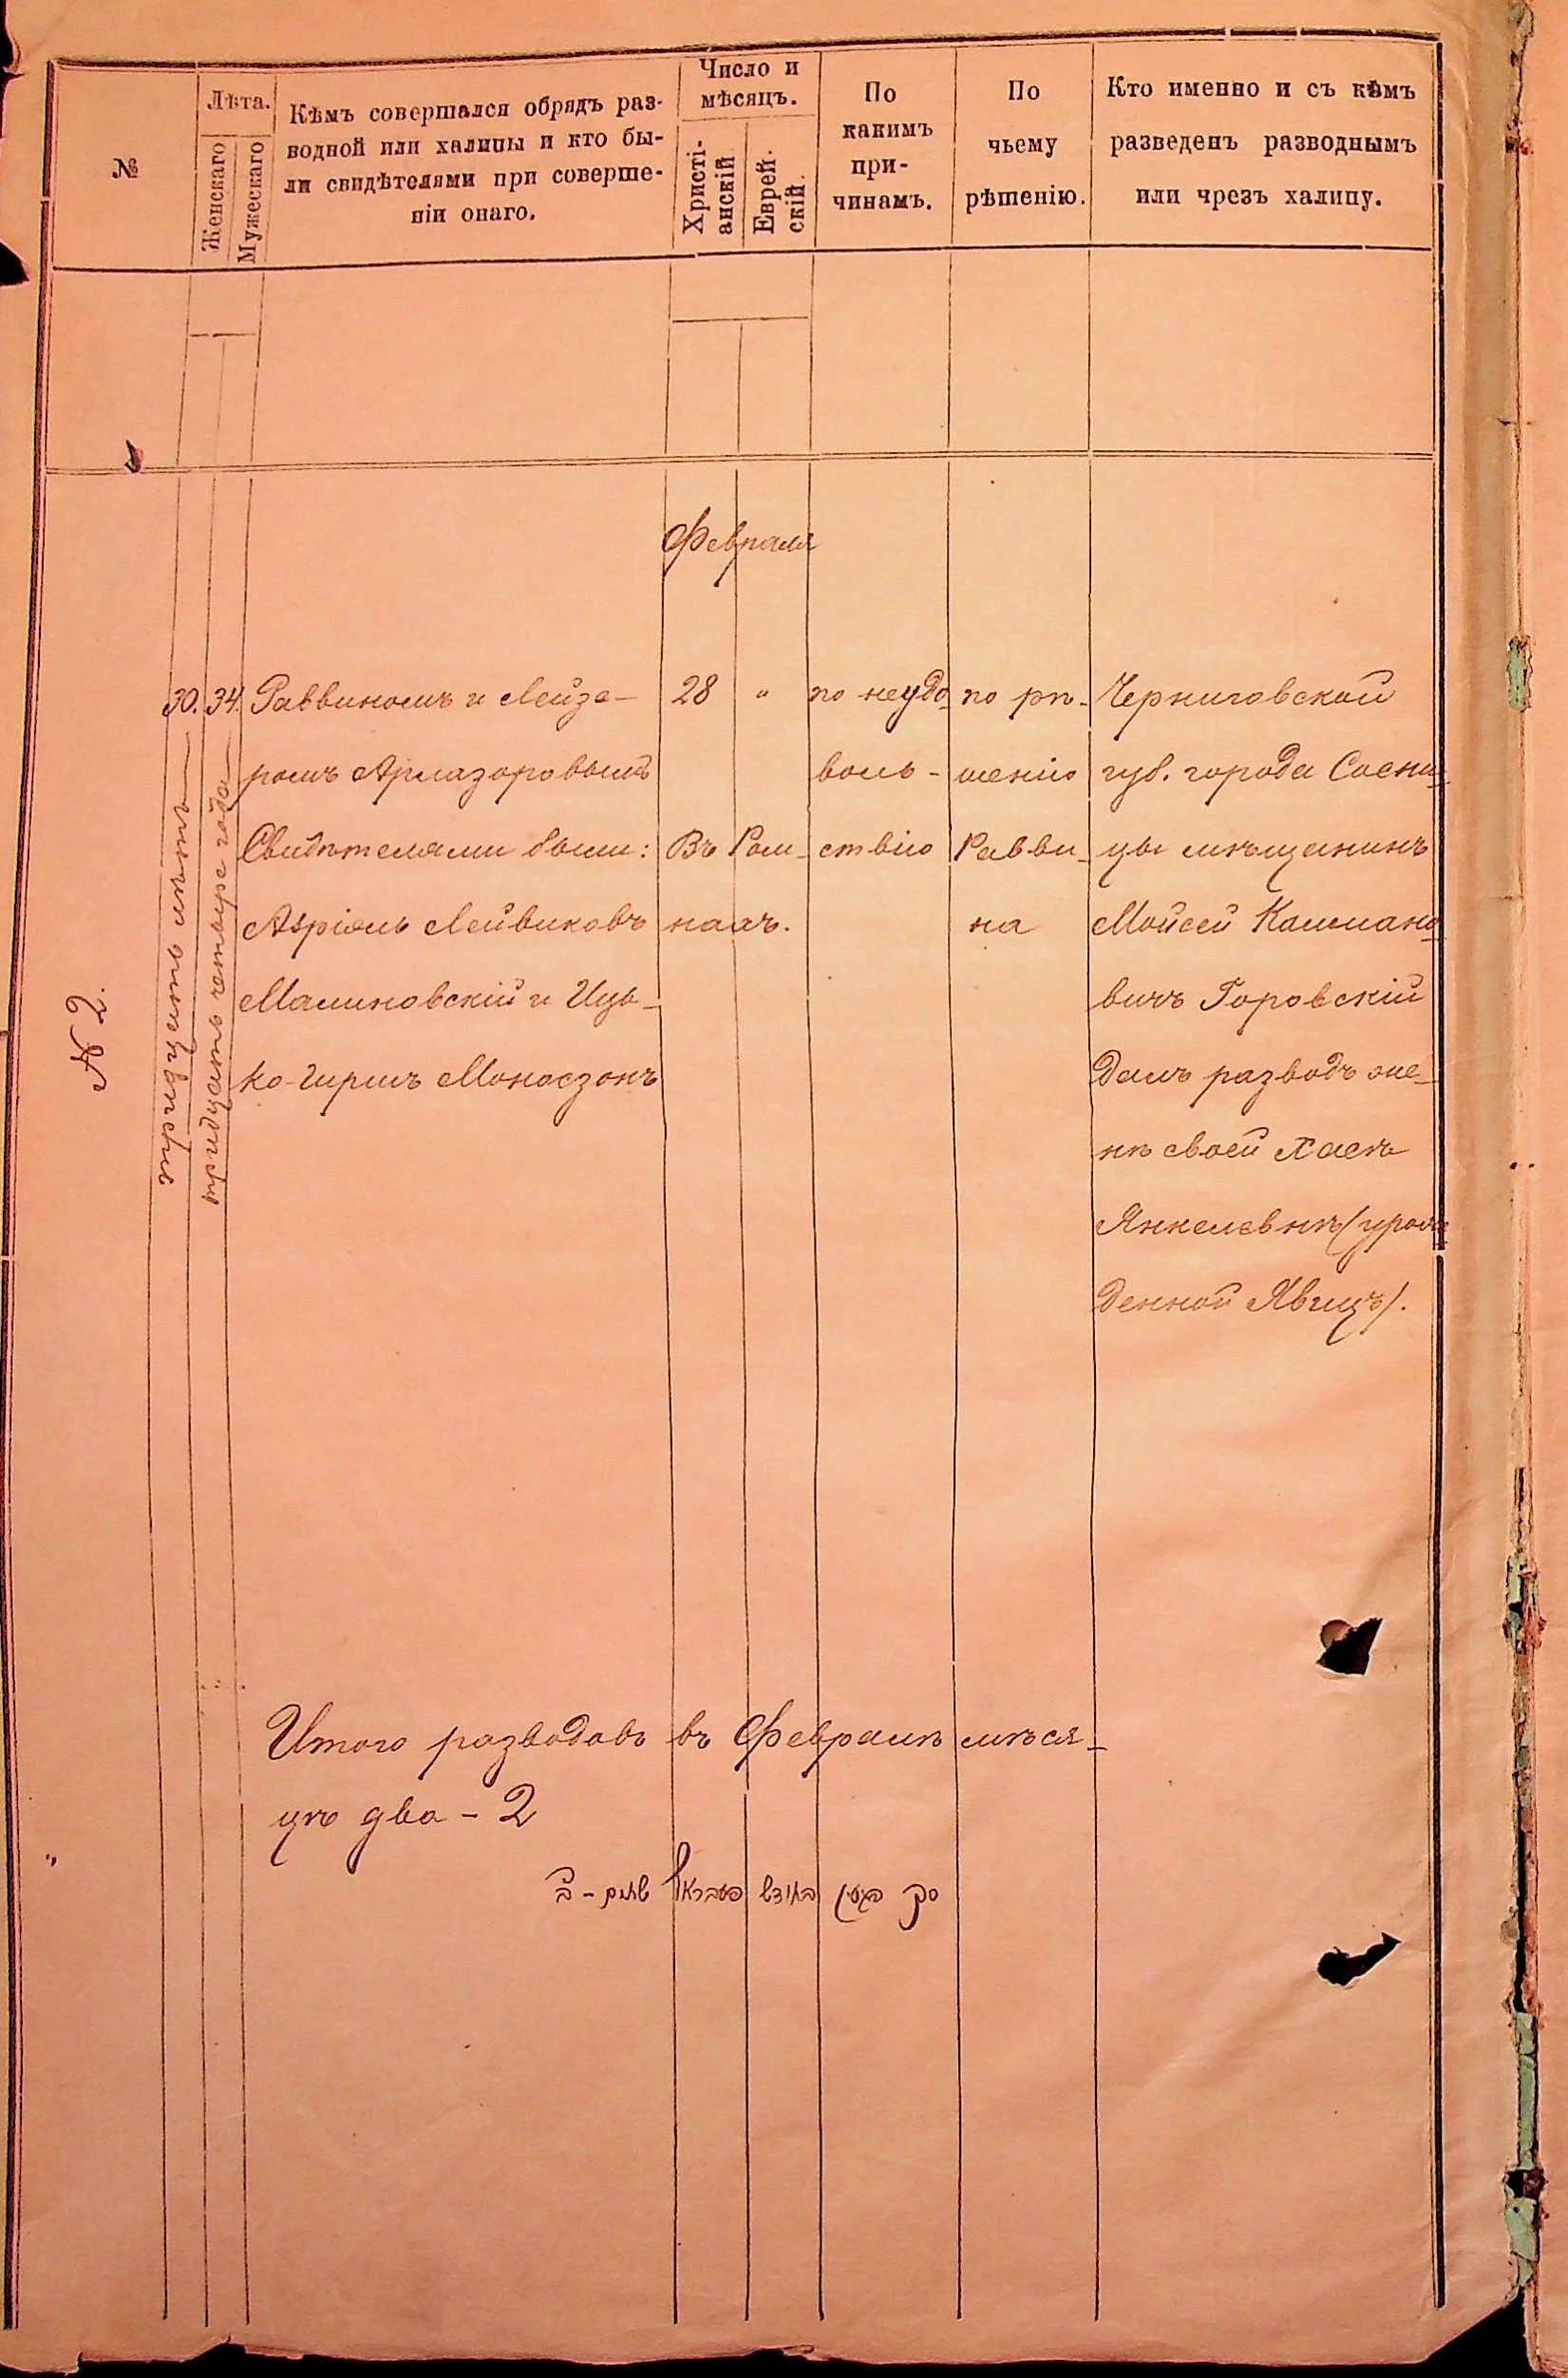 №
Лѣта.
Женскаго
Мужескаго
Кѣмъ совершался обрядъ раз-
водной или халицы и кто бы-
ли свидѣтелями при соверше-
нiи онаго.
Число и
мѣсяцъ.
Христi-
анскiй
Еврей-
скiй.
По
какимъ
при-
чинамъ.
По
чьему
рѣшенiю.
Кто именно и съ кѣмъ
разведенъ разводнымъ
или чрезъ халицу.
Февраля
№ 2.
30.
34.
тридцать четыре года
Раввиномъ и Лейзе-
ромъ Армазоровымъ
Свидѣтелями были:
Азрiель Лейвиковъ
Малиновскiй и Иць-
ко-Гиршъ Моносзонъ
28 "
Въ Ром-
нахъ.
по неудо-
воль-
ствiю
по рѣ-
шенiю
Равви-
на
Черниговской
губ. города Сосни-
цы мѣщанинъ
Мойсей Калмано-
вичъ Горовскiй
далъ разводъ же-
нѣ своей Хаѣ
Янкелевнѣ (урож-
денной Явицъ).
Итого разводовъ въ Февралѣ мѣся-
цѣ два - 2